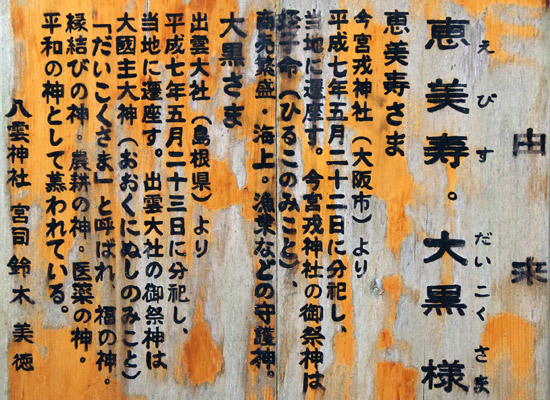 由来
恵美寿。大黒様
えびす だいこくさま
恵美寿さま
今宮戎神社(大阪市)より
平成七年五月二十二日に分祀し、
当地に遷座す。今宮戎神社の御祭神は
命(ひるこのみこと)、
商売繁盛・海上。漁業などの守護神。
大黒さま
出雲大社(島根県)より
平成七年五月二十三日に分祀し、
当地に遷座す。出雲大社の御祭神は
大國主大神(おおくにぬしのみこと)
「だいこくさま」と呼ばれ、福の神。
縁結びの神。農耕の神。医薬の神。
平和の神として慕われている。
八雲神社 宮司 鈴木美徳